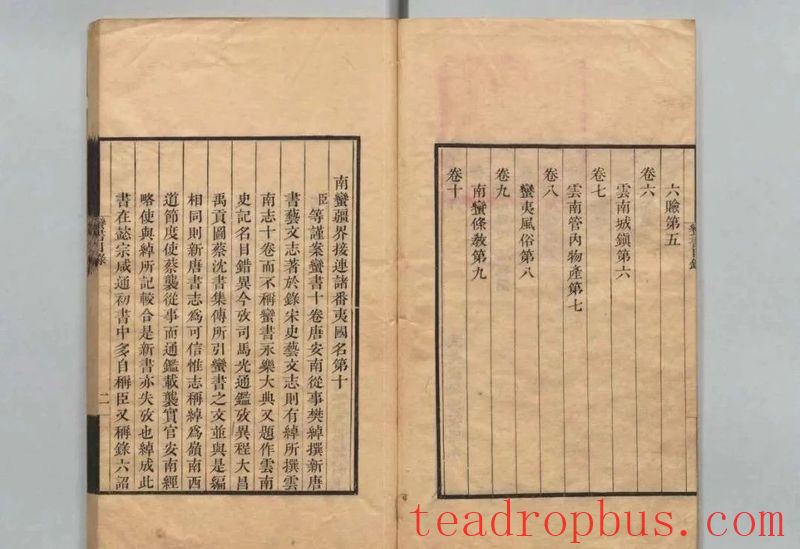 六瞼第五
卷六
雲南城鎮第六
卷七
雲南管內物產第七
卷八
蠻夷風俗第八
卷九
南蠻條教第九
卷十
南蠻疆界接連諸番夷國名第十
臣等謹案蠻書十卷唐安南從事樊綽撰新唐
書藝文志著於錄宋史藝文志則有綽所撰雲
南志十卷而不稱蠻書永樂大典又題作雲南
史記名目錯異今攷司馬光通鑑攷異程大昌
禹貢圖蔡沈書集傳所引蠻書之文並與是編
相同則新唐書志爲可信惟志稱綽爲嶺南西
道節度使蔡襲從事而通鑑載襲實官安南經
略使與綽所記較合是新書亦失攷也綽成此
書在懿宗咸通初書中多自稱臣又稱錄六詔
蠻書目錄
二
teadropbus.com